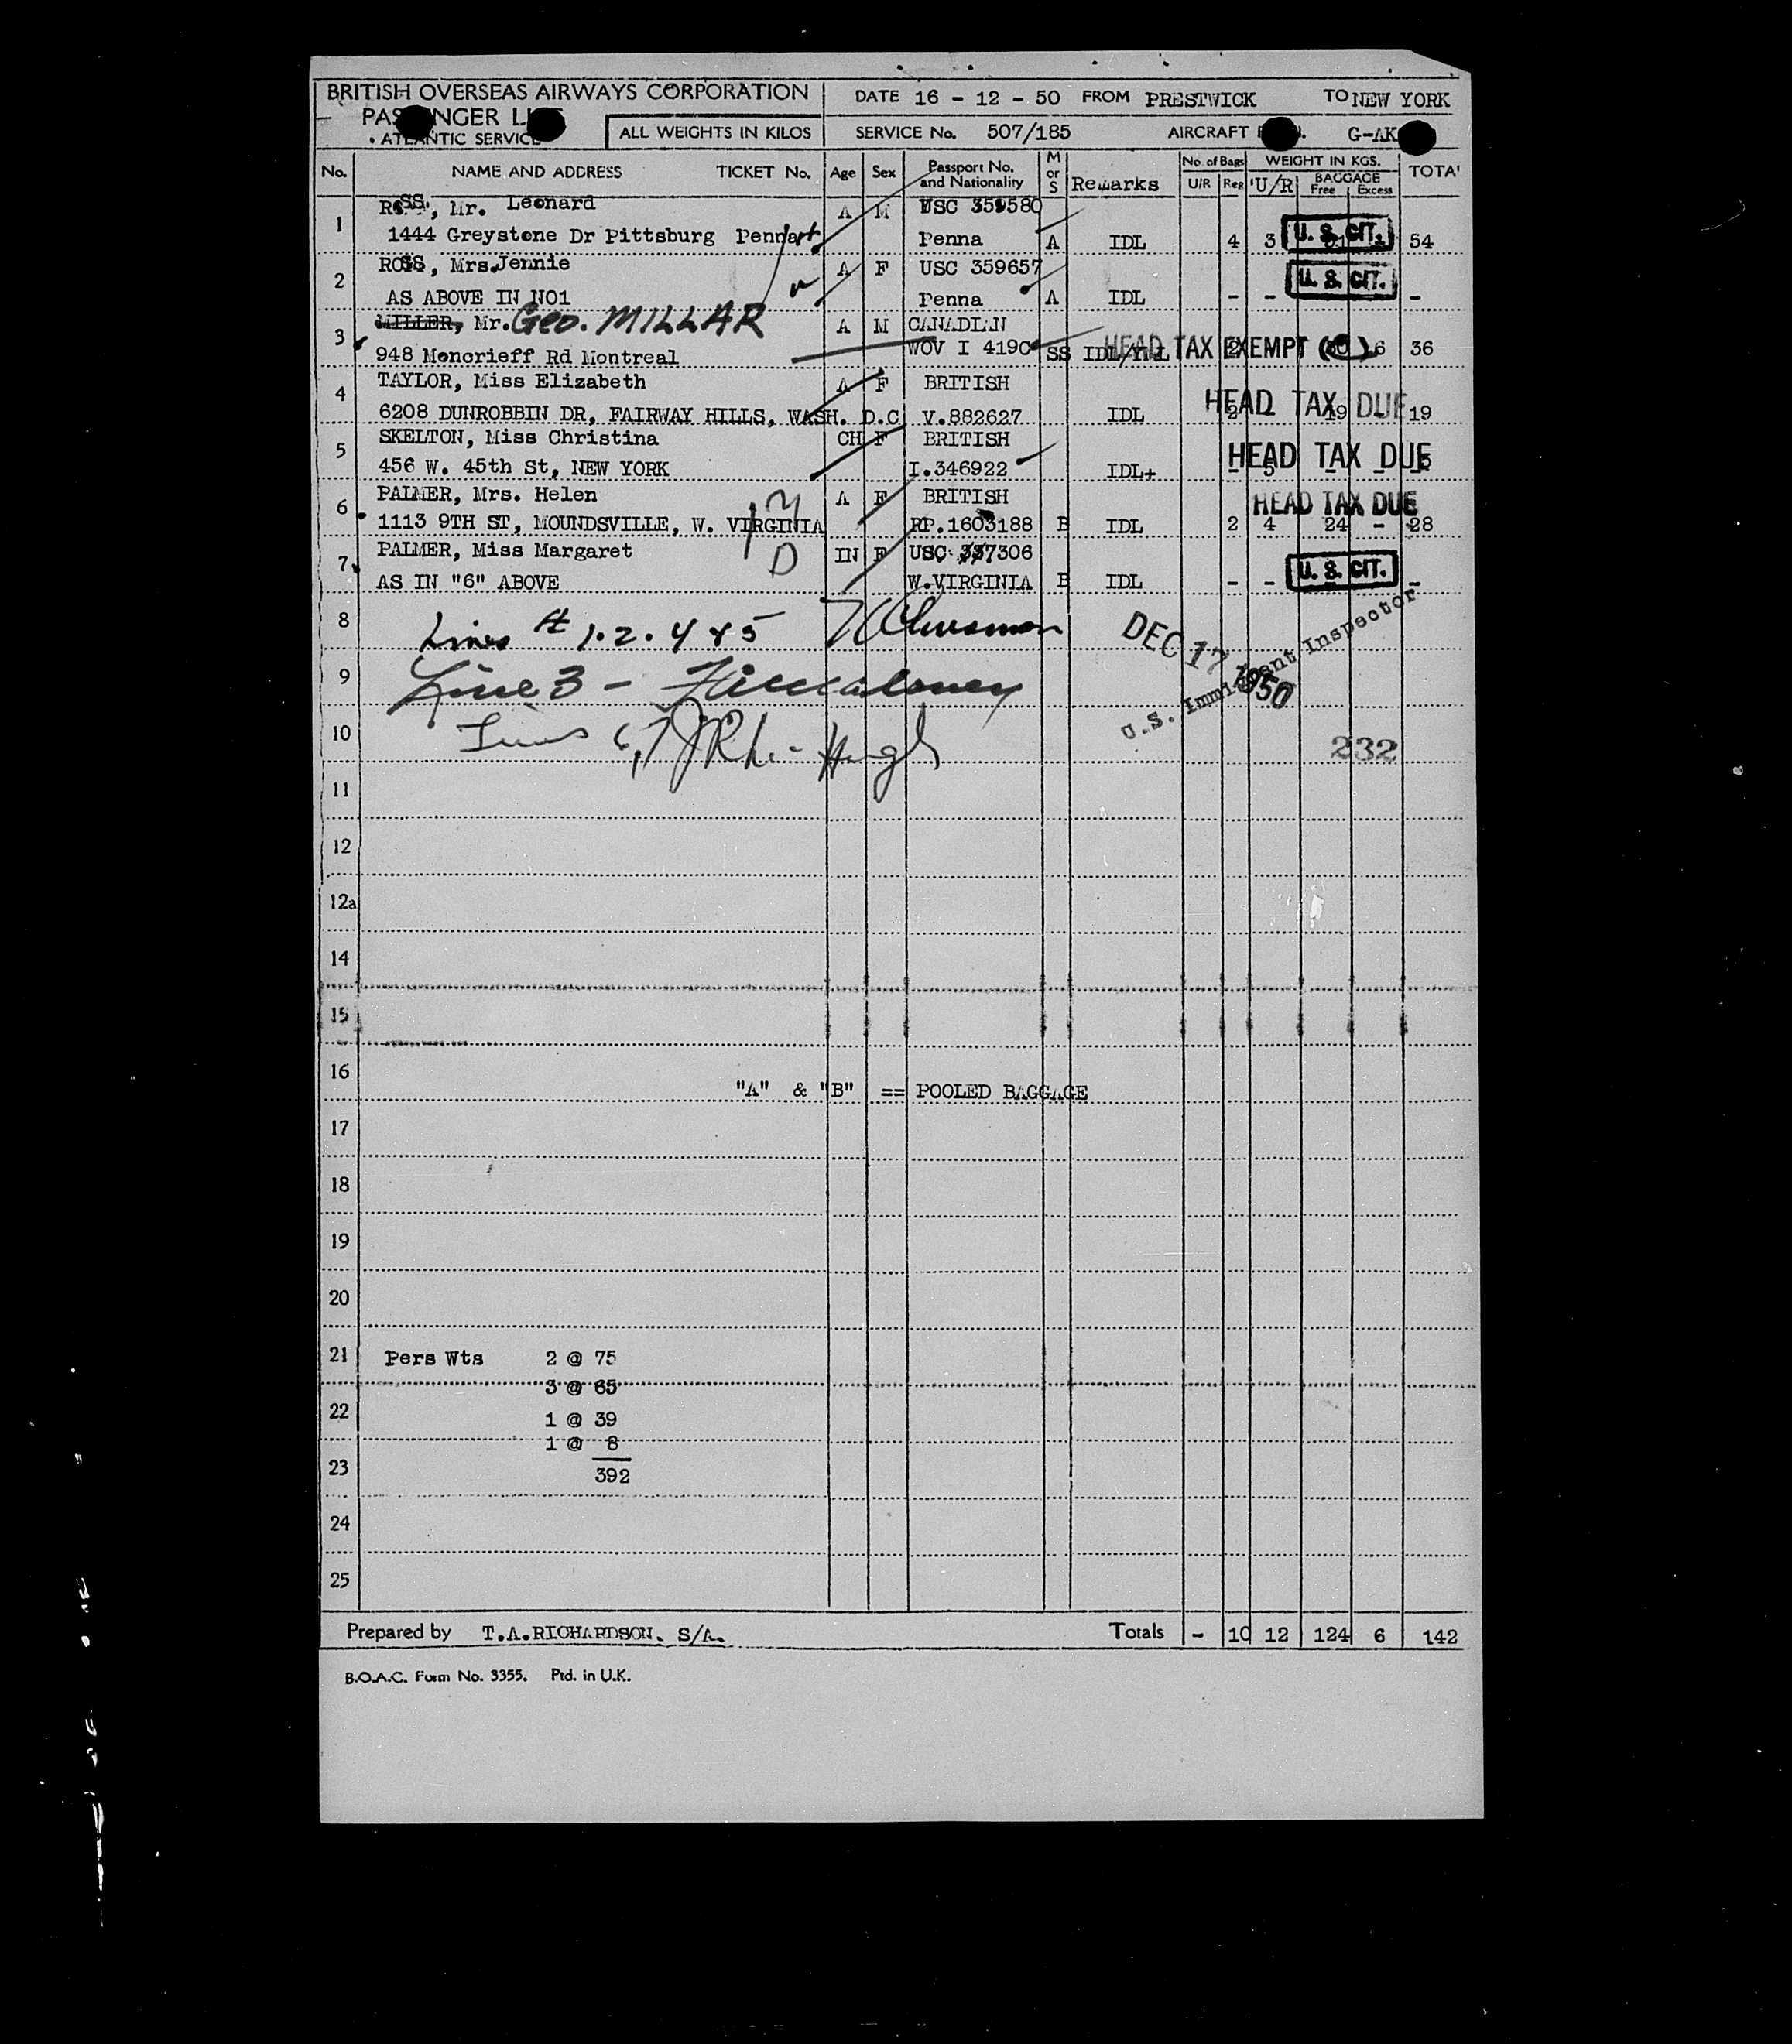 BRITISH OVERSEAS AIRWAYS CORPORATION
DATE 16 - 12 - 50 FROM PRESTWICK TO NEW YORK
ATLANTIC SERVICE
ALL WEIGHTS IN KILOS
SERVICE No. 507/185 AIRCRAFT G-AK
No. NAME AND ADDRESS TICKET No. Age Sex Passport No. and Nationality M or S Remarks No. of Bags U/R Reg WEIGHT IN KGS. U/R BAGGAGE Free Excess TOTA'
1 ROSS, Mr. Leonard A M USC 359580
1444 Greystone Dr Pittsburg Penna A IDL 4 3 U. S. CIT. 54
Penna
2 ROSS, Mrs. Jennie A F USC 359657
AS ABOVE IN NO1 Penna A IDL - - U. S. CIT. -
3 MILLER, Mr. Geo. MILLAR A M CANADIAN
948 Moncrieff Rd Montreal WOV I 4190 SS HEAD TAX EXEMPT 6 36
4 TAYLOR, Miss Elizabeth A F BRITISH
6208 DUNROBBIN DR, FAIRWAY HILLS, WASH. D.C V.882627 IDL 2 - 19 - 19
HEAD TAX DUE
5 SKELTON, Miss Christina CH F BRITISH
456 W. 45th St, NEW YORK I.346922 IDL+ - 5 - - 5
HEAD TAX DUE
6 PALMER, Mrs. Helen A F BRITISH
1113 9TH ST, MOUNDSVILLE, W. VIRGINIA RP.1603188 B IDL 2 4 24 - 28
HEAD TAX DUE
7 PALMER, Miss Margaret IN F USC 337306
AS IN "6" ABOVE W.VIRGINIA B IDL - - U. S. CIT. -
8 Lines # 1.2.4 & 5
9 Line 3 -
DEC 17 1950
U.S. Immigrant Inspector
10 Lines 6,7
232
11
12
12a
14
15
16
"A" & "B" == POOLED BAGGAGE
17
18
19
20
21 Pers Wts 2 @ 75
3 @ 65
22 1 @ 39
1 @ 8
23 392
24
25
Prepared by T.A.RICHARDSON. S/A. Totals - 10 12 124 6 142
B.O.A.C. Form No. 3355. Ptd. in U.K.